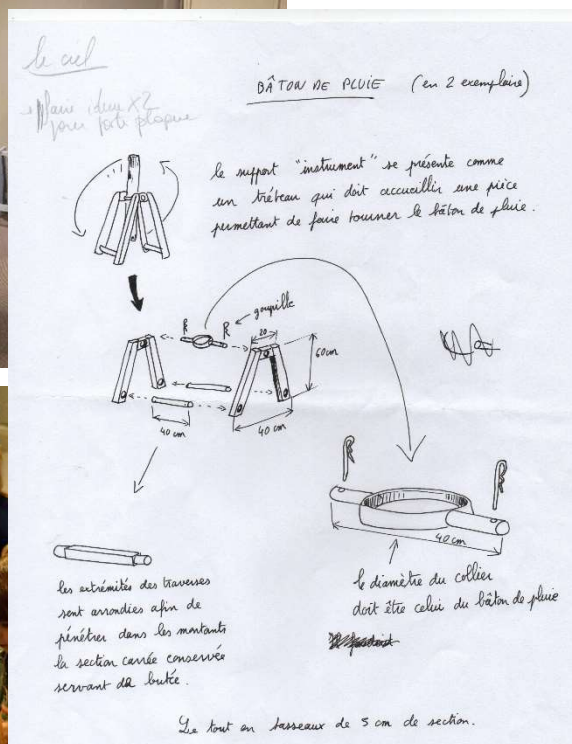 le ciel
BÂTON DE PLUIE (en 2 exemplaire)
faire idem X2
pour porte plaque
le support "instrument" se présente comme
un tréteau qui doit accueuillir une pièce
permettant de faire tourner le bâton de pluie.
goupille
20
60cm
40 cm
40 cm
40cm
les extrémités des traverses
sont arrondies afin de
pénétrer dans les montants
la section carrée conservée
servant de butée.
le diamètre du collier
doit être celui du bâton de pluie
Le tout en tasseaux de 5 cm de section.